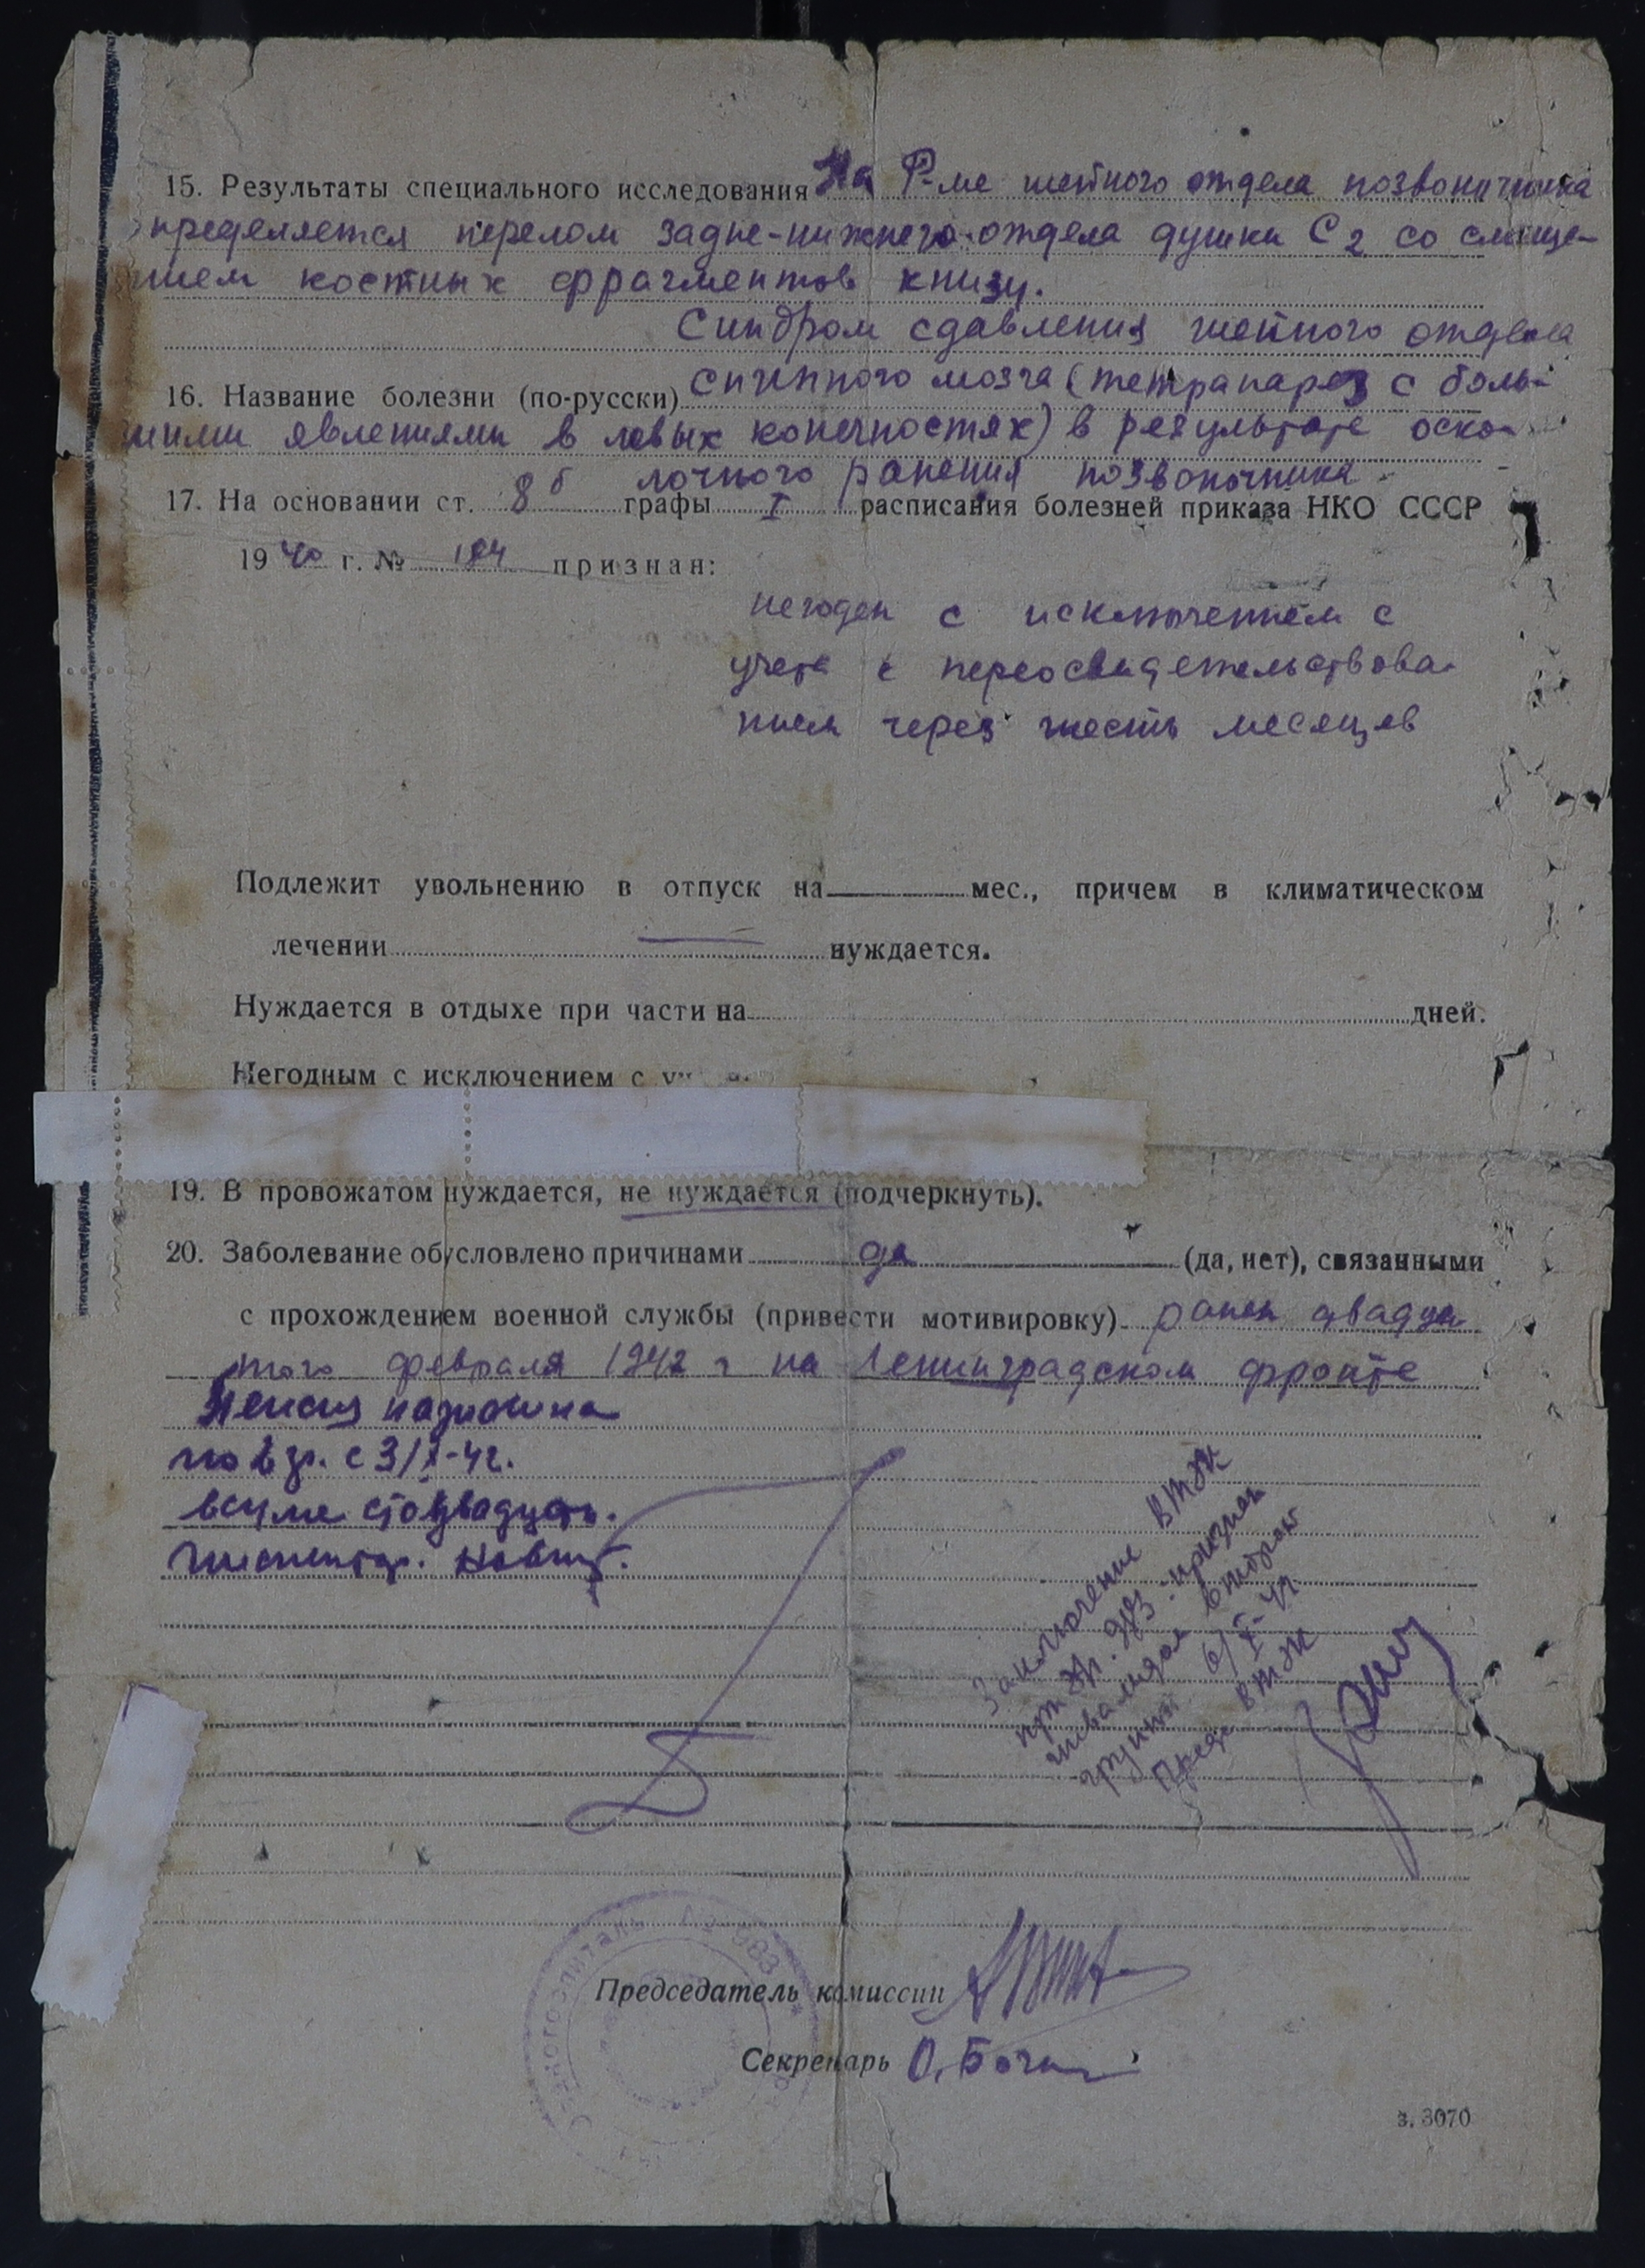 15. Результаты специального исследования На Р-ме шейного отдела позвоночника
определяется перелом задне-нижнего отдела дужки С2 со смеще-
нием костных фрагментов книзу.
Синдром сдавления шейного отдела
16. Название болезни (по-русски) спинного мозга (тетрапарез с боль-
шими явлениями в левых конечностях) в результате оско-
лочного ранения позвоночника
17. На основании ст. 8б графы I расписания болезней приказа НКО СССР
1940 г. № 184 признан:
негоден с исключением с
учета с переосвидетельствова-
нием через шесть месяцев
Подлежит увольнению в отпуск на мес., причем в климатическом
лечении нуждается.
Нуждается в отдыхе при части на дней.
Негодным с исключением с
19. В провожатом нуждается, не нуждается (подчеркнуть).
20. Заболевание обусловлено причинами да (да, нет), связанными
с прохождением военной службы (привести мотивировку) ранен двадца-
того февраля 1942 г на Ленинградском фронте
Пенсия назначена
по 2 гр. с 3/X-42.
в сумме сто двадцать.
Заключение ВТЭК
признан
инвалидом второй
группы 6/X-42
Пред. ВТЭК
Председатель комиссии
Секретарь О.
з. 3070